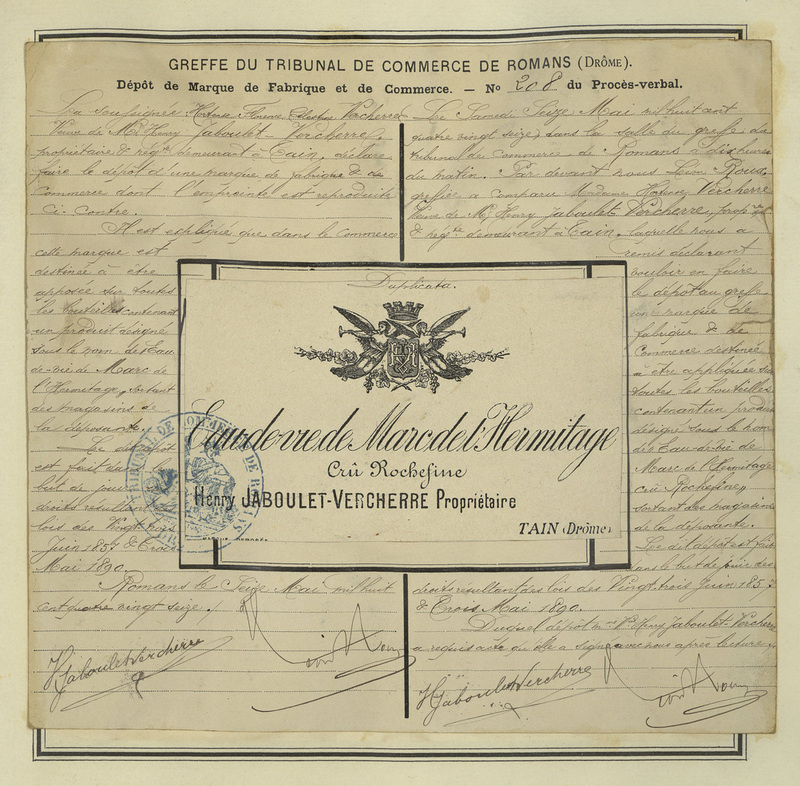 GREFFE DU TRIBUNAL DE COMMERCE DE ROMANS (DRÔME).
Dépôt de Marque de Fabrique et de Commerce. — No 208 du Procès-verbal.
La soussignée Florence Vercherre
Veuve de Mr Henry Jaboulet-Vercherre,
propriétaire & négte demeurant à Tain, déclare
faire le dépôt d'une marque de fabrique & de
Commerce dont l'empreinte est reproduite
ci-contre.
Il est expliqué que dans le Commerce
cette marque est
destinée à être
apposée sur toutes
les bouteilles contenant
un produit désigné
sous le nom des Eau-
de-vie de Marc de
l'Hermitage, sortant
des magasins de
la déposante.
Le dépôt
est fait dans
but de jouir
droits résultant
lois des Vingt trois
Juin 1857 & Trois
Mai 1890.
Romans le Seize Mai mil huit
cent quatre vingt seize./.
H Jaboulet Vercherre
Le Samedi Seize Mai mil huit cent
quatre vingt seize, dans la salle du greffe du
tribunal de commerce de Romans à dix heures
du matin. Par devant nous Léon Roux,
greffier a comparu Madame Henry Vercherre
Veuve de Mr Henry Jaboulet Vercherre, proprre
& négte demeurant à Tain, laquelle nous a
remis déclarant
vouloir en faire
le dépôt au greffe
une marque de
fabrique & de
Commerce destinée
à être appliquée sur
toutes les bouteilles
contenant un produit
désigné sous le nom
des Eau-de-vie de
Marc de l'Hermitage
crû Rochefine,
sortant des magasins
de la déposante.
Le dit dépôt est fait
dans le but de jouir des
droits résultant des lois des Vingt trois Juin 1857
& Trois Mai 1890.
Duquel dépôt Mme Vve Henry Jaboulet-Vercherre
a requis acte qu'elle a signé avec nous après lecture
H Jaboulet Vercherre
Duplicata.
Eau-de-vie de Marc de l'Hermitage
Crû Rochefine
Henry JABOULET-VERCHERRE Propriétaire
TAIN (Drôme)
TRIBUNAL DE COMMERCE DE ROMANS